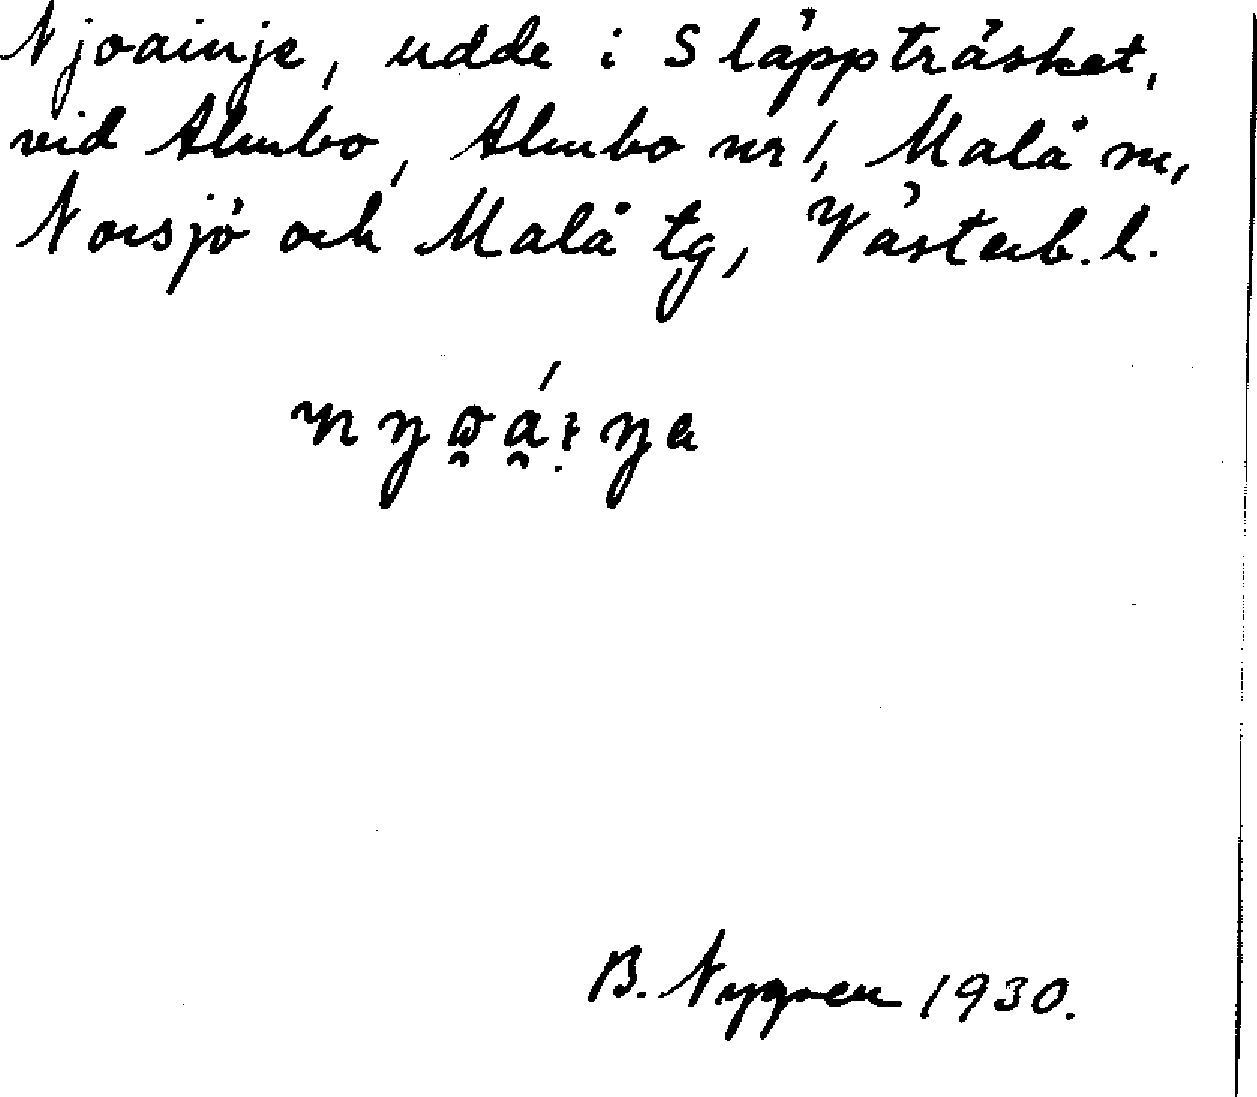 Njoainje, udde i Släppträsket,
vid Almbo, Almbo nr 1, Malå sn,
Norsjö och Malå tg, Västerb. l.
B. Nygren 1930.